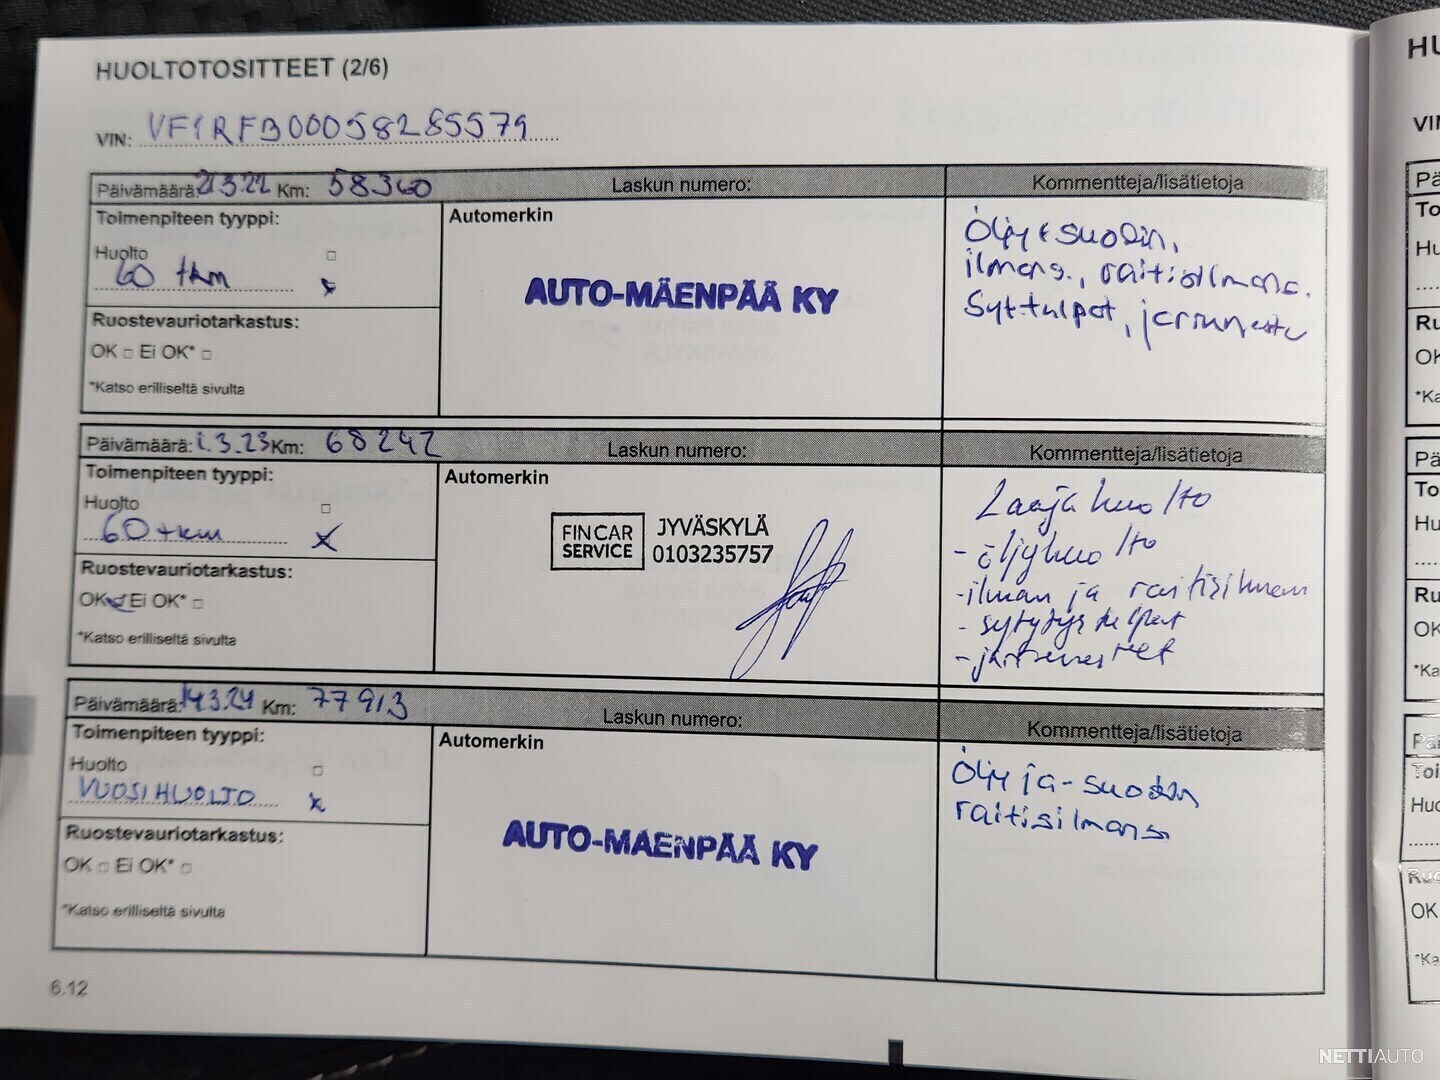 HUOLTOTOSITTEET (2/6)
VIN: VF1RFB00058285579
Päivämäärä: 21.3.22 Km: 58360 Laskun numero: Kommentteja/lisätietoja
Toimenpiteen tyyppi:
Huolto
60 tkm
Ruostevauriotarkastus:
OK □ Ei OK* □
*Katso erilliseltä sivulta
Automerkin
AUTO-MÄENPÄÄ KY
Öljy + suodin,
ilmans., raitisilmans.
Syt.tulpat, jarruneste
Päivämäärä: 1.3.23 Km: 68242 Laskun numero: Kommentteja/lisätietoja
Toimenpiteen tyyppi:
Huolto
60 tkm
Ruostevauriotarkastus:
OK Ei OK* □
*Katso erilliseltä sivulta
Automerkin
FINCAR SERVICE
JYVÄSKYLÄ
0103235757
Laaja huolto
- öljyhuolto
- ilman ja raitisilman
- sytytystulpat
- jarrunesteet
Päivämäärä: 14.3.24 Km: 77913 Laskun numero: Kommentteja/lisätietoja
Toimenpiteen tyyppi:
Huolto
VUOSIHUOLTO
Ruostevauriotarkastus:
OK □ Ei OK* □
*Katso erilliseltä sivulta
Automerkin
AUTO-MÄENPÄÄ KY
Öljy ja -suodin
raitisilmans.
6.12
HU
VIN
Pä
To
Hu
Ru
OK
*Ka
Pä
To
Hu
Ru
OK
*Ka
Pä
Toi
Huo
Ruo
OK
*Ka
NETTIAUTO